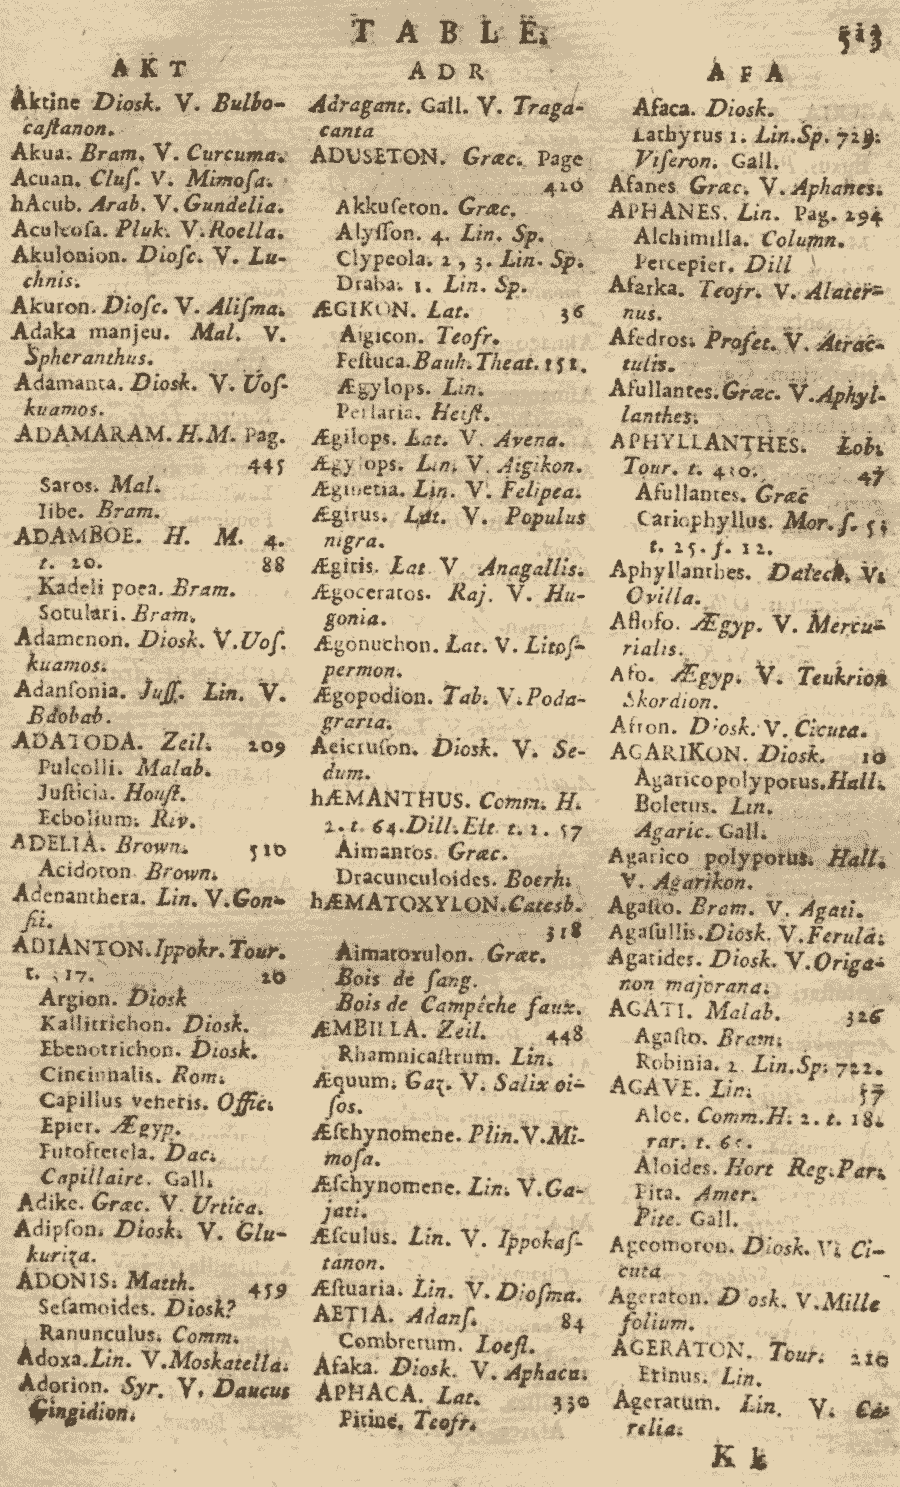 TABLE. 513
AKT
Aktine Diosk. V. Bulbo-
caſtanon.
Akua. Bram. V. Curcuma.
Acuan. Cluſ. V. Mimoſa.
hAcub. Arab. V. Gundelia.
Aculeoſa. Pluk. V. Roella.
Akulonion. Dioſc. V. Lu-
chnis.
Akuron. Dioſc. V. Aliſma.
Adaka manjeu. Mal. V.
Spheranthus.
Adamanta. Diosk. V. Uoſ-
kuamos.
ADAMARAM. H. M. Pag.
445
Saros. Mal.
Iibe. Bram.
ADAMBOE. H. M. 4.
t. 20. 88
Kadeli poea. Bram.
Sotulari. Bram.
Adamenon. Diosk. V. Uoſ.
kuamos.
Adanſonia. Juſſ. Lin. V.
Baobab.
ADATODA. Zeil. 209
Pulcolli. Malab.
Juſticia. Houſt.
Ecbolium. Riv.
ADELIA. Brown. 510
Acidoton Brown.
Adenanthera. Lin. V. Gon-
ſii.
ADIANTON. Ippokr. Tour.
t. 317. 20
Argion. Diosk
Kallitrichon. Diosk.
Ebenotrichon. Diosk.
Cincinnalis. Rom.
Capillus veneris. Offic.
Epier. Ægyp.
Futoſretela. Dac.
Capillaire. Gall.
Adike. Græc. V. Urtica.
Adipſon. Diosk. V. Glu-
kuriza.
ADONIS. Matth. 459
Seſamoides. Diosk?
Ranunculus. Comm.
Adoxa. Lin. V. Moskatella.
Adorion. Syr. V. Daucus
Gingidion.
ADR
Adragant. Gall. V. Traga-
canta
ADUSETON. Græc. Page
420
Akkuſeton. Græc.
Alyſſon. 4. Lin. Sp.
Clypeola. 2, 3. Lin. Sp.
Draba. 1. Lin. Sp.
ÆGIKON. Lat. 36
Aigicon. Teofr.
Feſtuca. Bauh. Theat. 151.
Ægylops. Lin.
Perlaria. Heiſt.
Ægilops. Lat. V. Avena.
Ægylops. Lin. V. Aigikon.
Æginetia. Lin. V. Felipea.
Ægirus. Lat. V. Populus
nigra.
Ægitis. Lat V Anagallis.
Ægoceratos. Raj. V. Hu-
gonia.
Ægonuchon. Lat. V. Litoſ-
permon.
Ægopodion. Tab. V. Poda-
graria.
Aeicruſon. Diosk. V. Se-
dum.
hÆMANTHUS. Comm. H.
2. t. 64. Dill. Elt. t. 1. 57
Aimantos. Græc.
Dracunculoides. Boerh.
hÆMATOXYLON. Catesb.
318
Aimatoxulon. Græc.
Bois de ſang.
Bois de Campêche faux.
ÆMBILLA. Zeil. 448
Rhamnicaſtrum. Lin.
Æquum. Gaz. V. Salix oi-
ſos.
Æſchynomene. Plin. V. Mi-
moſa.
Æſchynomene. Lin. V. Ga-
jati.
Æſculus. Lin. V. Ippokaſ-
tanon.
Æſtuaria. Lin. V. Dioſma.
AETIA. Adanſ. 84
Combretum. Loefl.
Afaka. Diosk. V. Aphaca.
APHACA. Lat. 330
Pitine. Teofr.
AFA
Afaca. Diosk.
Lathyrus 1. Lin. Sp. 729.
Viſeron. Gall.
Afanes Græc. V. Aphanes.
APHANES. Lin. Pag. 294
Alchimilla. Column.
Percepier. Dill
Afarka. Teofr. V. Alater-
nus.
Afedros. Profet. V. Atrac-
tulis.
Afullantes. Græc. V. Aphyl-
lanthes.
APHYLLANTHES. Lob.
Tour. t. 430. 47
Afullantes. Græc
Cariophyllus. Mor. ſ. 5.
t. 25. f. 12.
Aphyllanthes. Dalech. V.
Ovilla.
Afloſo. Ægyp. V. Mercu-
rialis.
Afo. Ægyp. V. Teukrion
Skordion.
Afron. Diosk. V. Cicuta.
AGARIKON. Diosk. 10
Agarico polyporus. Hall.
Boletus. Lin.
Agaric. Gall.
Agarico polyporus. Hall.
V. Agarikon.
Agaſto. Bram. V. Agati.
Agaſullis. Diosk. V. Ferula.
Agatides. Diosk. V. Origa-
non majorana.
AGATI. Malab. 326
Agaſto. Bram.
Robinia. 2 Lin. Sp. 722.
AGAVE. Lin. 57
Aloe. Comm. H. 2. t. 18.
rar. t.
Aloides. Hort Reg. Par.
Pita. Amer.
Pite. Gall.
Ageomoron. Diosk. V. Ci-
cuta
Ageraton. Diosk. V. Mille
folium.
AGERATON. Tour. 210
Erinus. Lin.
Ageratum. Lin. V. Ca-
relia.
K k